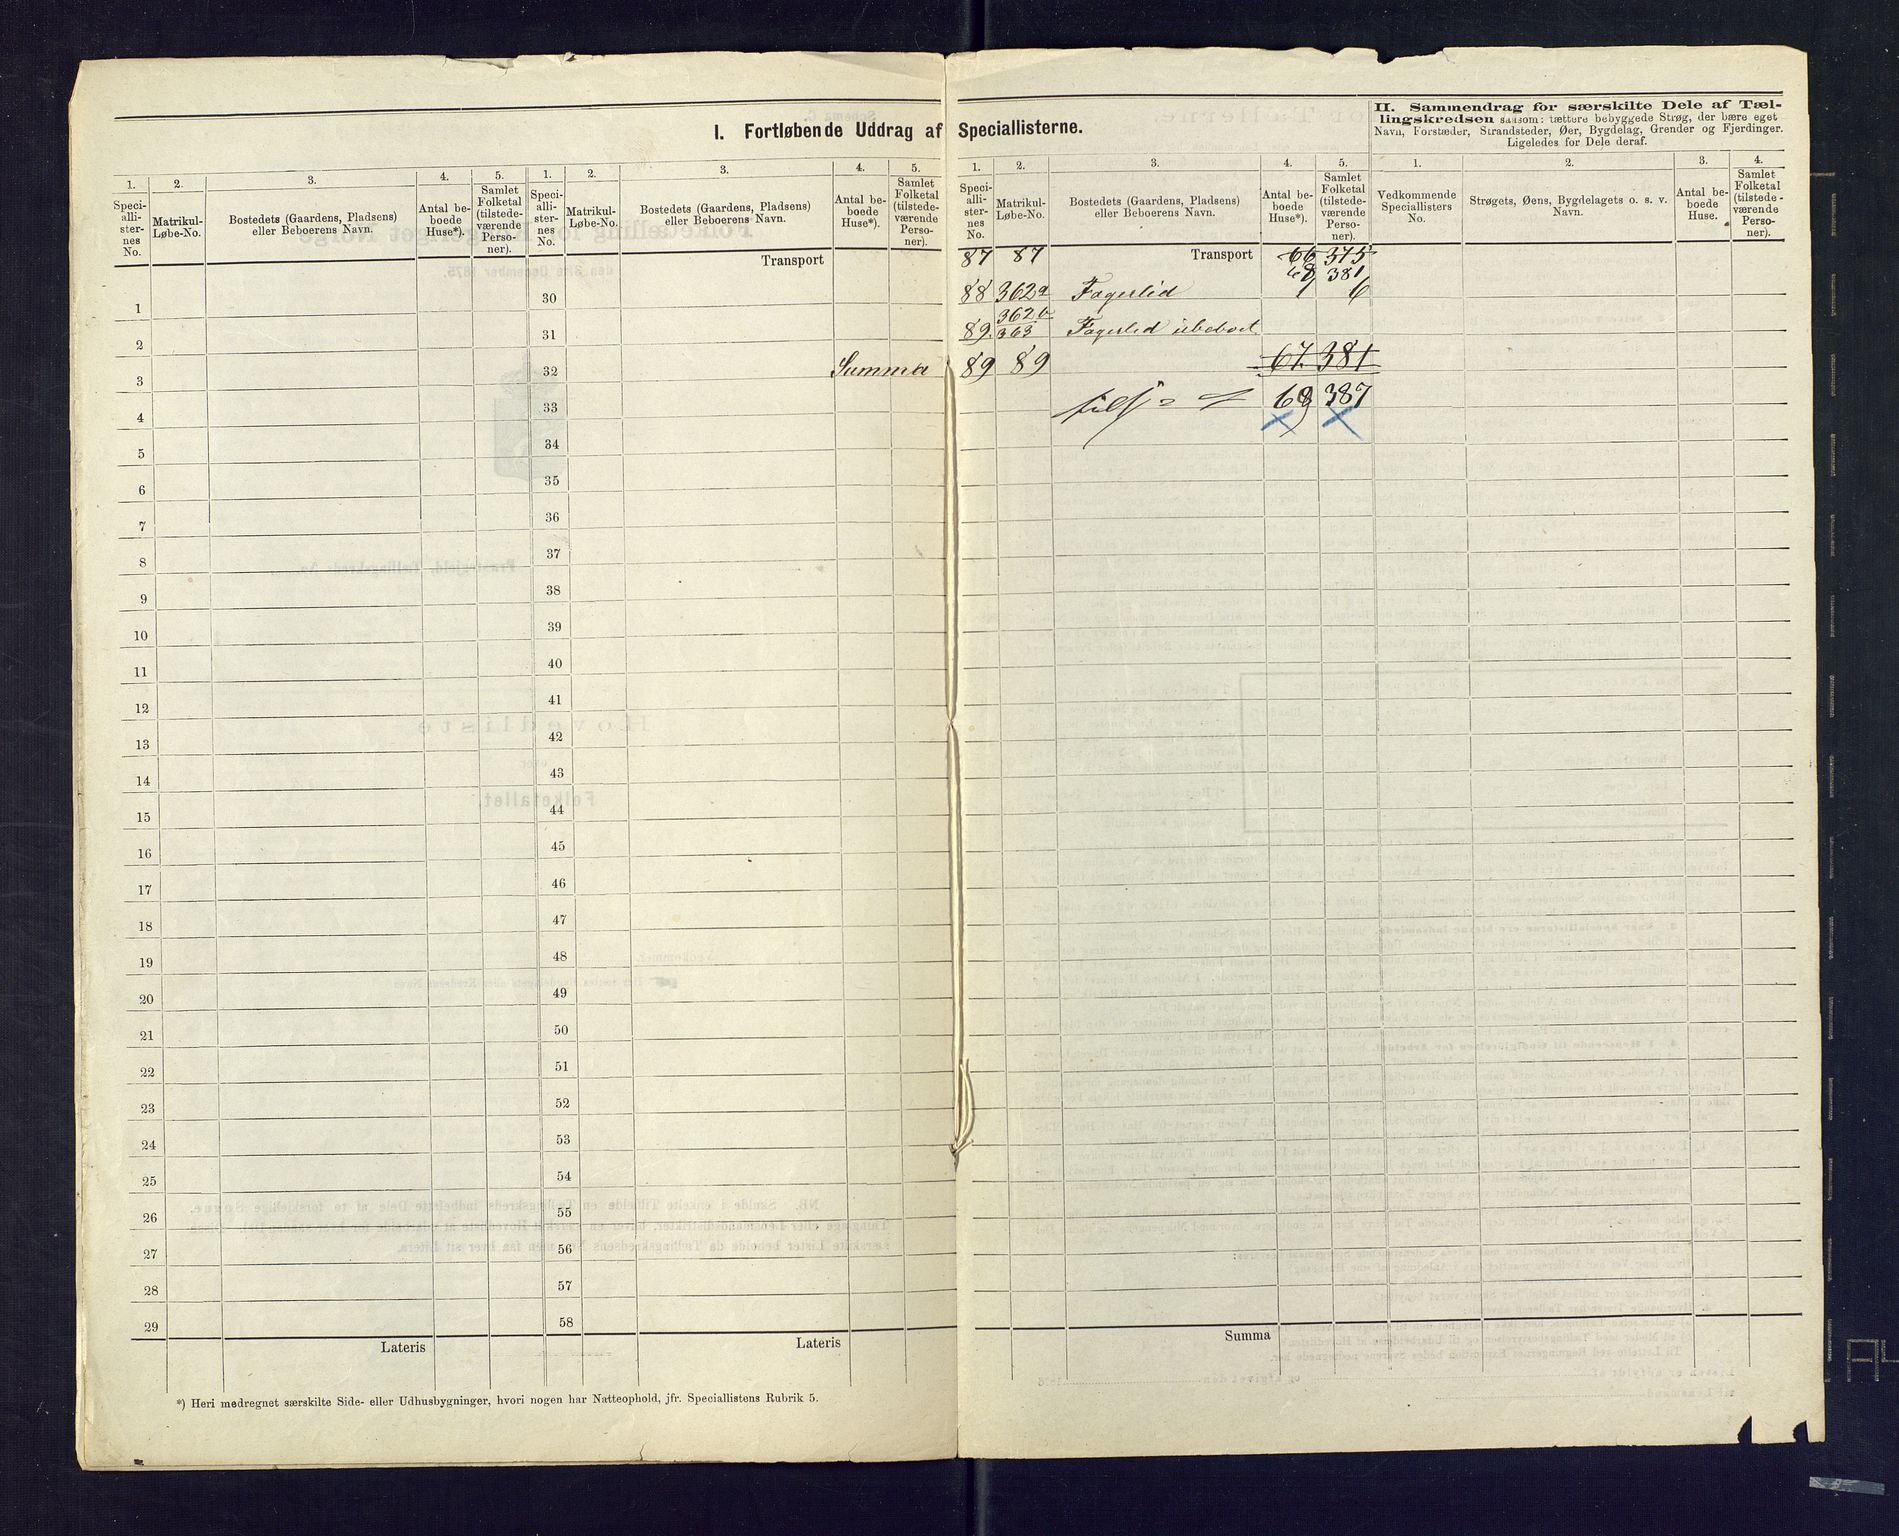 I. Fortløbende Uddrag af Speciallisterne.
II. Sammendrag for særskilte Dele af Tæl-
lingskredsen saasom: tættere bebyggede Strøg, der bære eget
Navn, Forstæder, Strandsteder, Øer, Bygdelag, Grender og Fjerdinger.
Ligeledes for Dele deraf.
1. 2. 3. 4. 5. 1. 2. 3. 4. 5. 1. 2. 3. 4. 5. 1. 2. 3. 4.
Speci-
alli-
ster-
nes
No.
Matrikul-
Løbe-No.
Bostedets (Gaardens, Pladsens)
eller Beboerens Navn.
Antal be-
boede
Huse*).
Samlet
Folketal
(tilstede-
værende
Perso-
ner).
Speci-
alli-
ster-
nes
No.
Matrikul-
Løbe-No.
Bostedets (Gaardens, Pladsens)
eller Beboerens Navn.
Antal be-
boede
Huse*).
Samlet
Folketal
(tilstede-
værende
Perso-
ner).
Speci-
alli-
ster-
nes
No.
Matrikul-
Løbe-No.
Bostedets (Gaardens, Pladsens)
eller Beboerens Navn.
Antal be-
boede
Huse*).
Samlet
Folketal
(tilstede-
værende
Perso-
ner).
Vedkommende
Speciallisters
No.
Strøgets, Øens, Bygdelagets o. s. v.
Navn.
Antal be-
boede
Huse.
Samlet
Folketal
(tilstede-
værende
Perso-
ner).
1
2
3
4
5
6
7
8
9
10
11
12
13
14
15
16
17
18
19
20
21
22
23
24
25
26
27
28
29
Lateris
Transport
30
31
32 Summa
33
34
35
36
37
38
39
40
41
42
43
44
45
46
47
48
49
50
51
52
53
54
55
56
57
58
Lateris
87 87 Transport 66 375
381
88 362a Fagerlid 1 6
362b
89. 363 Fagerlid ubeboet
89 89 67. 381
387
Summa
*) Heri medregnet særskilte Side- eller Udhusbygninger, hvori nogen har Natteophold, jfr. Speciallistens Rubrik 5.